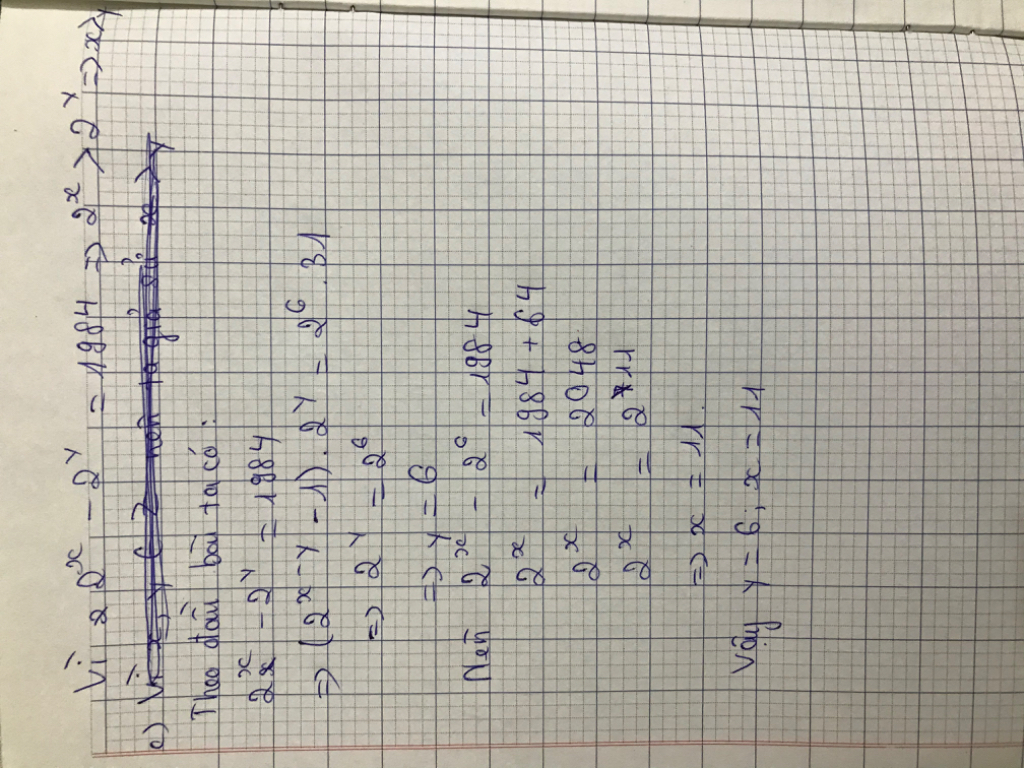 Vì 2^x - 2^y = 1984 => 2^x > 2^y => x > y
c) Vì x, y ∈ Z nên ta giả sử x > y
Theo đầu bài ta có:
2^x - 2^y = 1984
=> (2^x-y - 1) . 2^y = 2^6 . 31
=> 2^y = 2^6
=> y = 6
Nên 2^x - 2^6 = 1984
2^x = 1984 + 64
2^x = 2048
2^x = 2^11
=> x = 11.
Vậy y = 6; x = 11